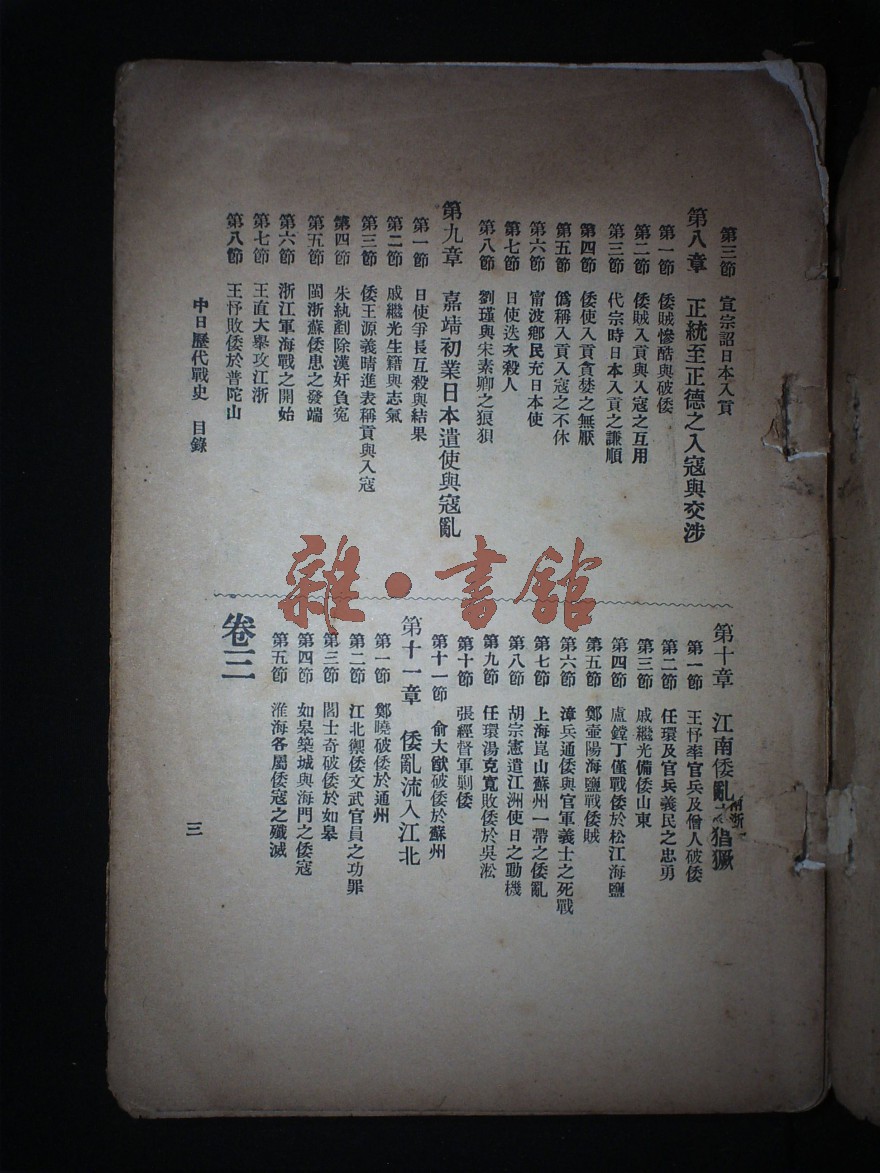 第三節　宣宗詔日本入貢
第八章　正統至正德之入寇與交涉
第一節　倭賊慘酷與破倭
第二節　倭賊入貢與入寇之互用
第三節　代宗時日本入貢之謙順
第四節　倭使入貢貪婪之無厭
第五節　僞稱入貢入寇之不休
第六節　甯波鄉民充日本使
第七節　日使迭次殺人
第八節　劉瑾與宋素卿之狼狽
第九章　嘉靖初業日本遣使與寇亂
第一節　日使爭長互殺與結果
第二節　戚繼光生籍與志氣
第三節　倭王源義晴進表稱貢與入寇
第四節　朱紈剷除漢奸負寃
第五節　閩浙蘇倭患之發端
第六節　浙江軍海戰之開始
第七節　王直大舉攻江浙
第八節　王忬敗倭於普陀山
第十章　江南倭亂猖獗
第一節　王忬率官兵及僧人破倭
第二節　任環及官兵義民之忠勇
第三節　戚繼光備倭山東
第四節　盧鏜丁僅戰倭於松江海鹽
第五節　鄭壺陽海鹽戰倭賊
第六節　漳兵通倭與官軍義士之死戰
第七節　上海崑山蘇州一帶之倭亂
第八節　胡宗憲遣江洲使日之動機
第九節　任環湯克寬敗倭於吳淞
第十節　張經督軍剿倭
第十一節　俞大猷破倭於蘇州
第十一章　倭亂流入江北
第一節　鄭曉破倭於通州
第二節　江北禦倭文武官員之功罪
第三節　閻士奇破倭於如皋
第四節　如皋築城與海門之倭寇
第五節　淮海各屬倭寇之殲滅
卷三
中日歷代戰史　目錄
三
雜·書館